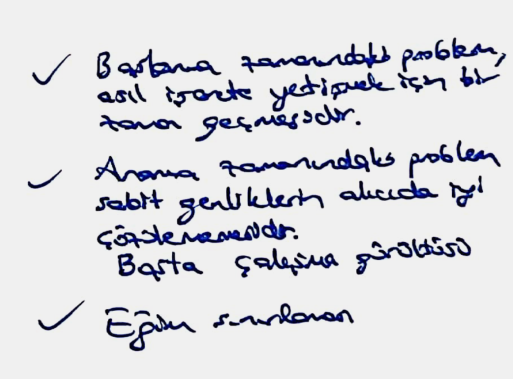 ✓ Başlama zamanındaki problem,
asıl işarete yetişmek için bir
zaman geçmesidir.
✓ Arama zamanındaki problem
sabit genliklerin alıcıda iyi
çözülememesidir.
Başta çalışma gürültüsü
✓ Eğim sınırlanan